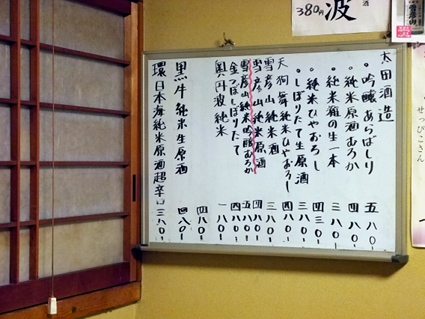 太田酒造
・吟醸あらばしり 五八〇-
・純米原酒むろか 四八〇-
・純米瓶の生一本 三八〇-
純米ひやおろし 四三〇-
・しぼりたて生原酒 三八〇-
天狗舞純米ひやおろし 四八〇-
雪彦山純米酒 三八〇-
雪彦山純米原酒 四八〇-
雪彦山純米吟醸むろか 五八〇-
金つるしぼりたて 四八〇-
奥丹波純米 一八〇-
四八〇-
黒牛純米生原酒 四八〇-
環日本海純米原酒超辛口 三八〇-
380円
波
酒
せっぴこさん